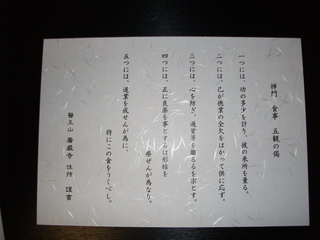 禅門 食事 五観の偈
一つには、功の多少を計り、彼の来所を量る。
二つには、己が徳業の全欠をはかって供に応ず。
三つには、心を防ぎ、過貪等を離るるを宗とす。
四つには、正に良薬を事とするは形枯を
療ぜんが為なり。
五つには、道業を成ぜんが為に、
将にこの食をうくべし。
醫王山 廣厳寺 住持 謹書